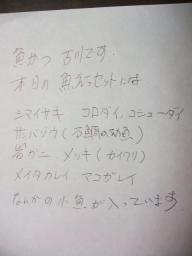 魚かつ 古川です.
本日の 魚かつセットには
シマイサキ コロダイ、コショーダイ
サンバソウ(石鯛の幼魚)
岩ガニ、メッキ(カイワリ)
メイタカレイ、マコガレイ
なんかの小魚が入っています